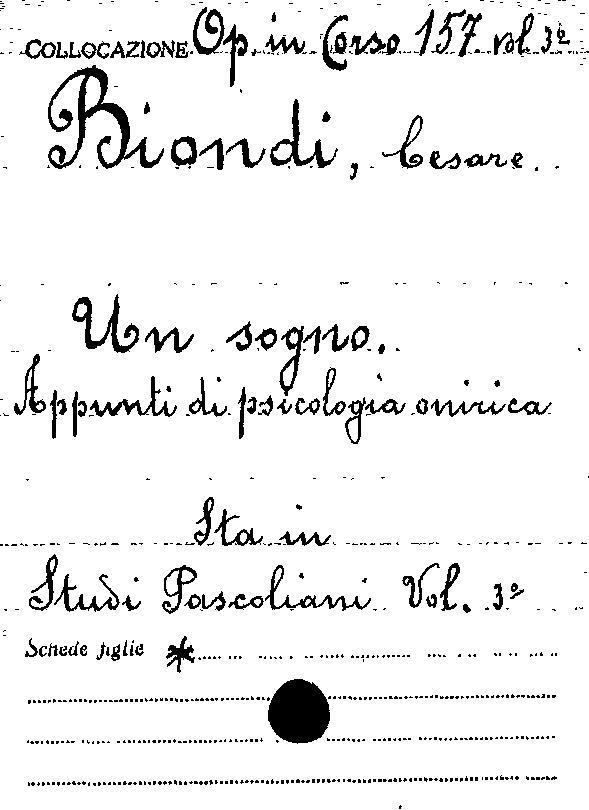 COLLOCAZIONE Op. in Corso 157. vol 3º
Biondi, Cesare.
Un sogno.
Appunti di psicologia onirica
Sta in
Studi Pascoliani Vol. 3º
Schede figlie *